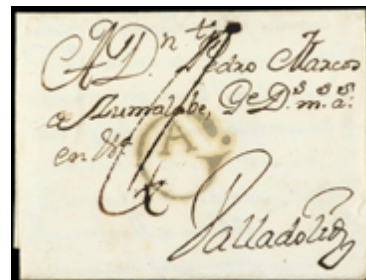 A D.ⁿ Pedro Marcos
a Zumalabe, Qe D.s m.s a.s
en
A.
Valladolid